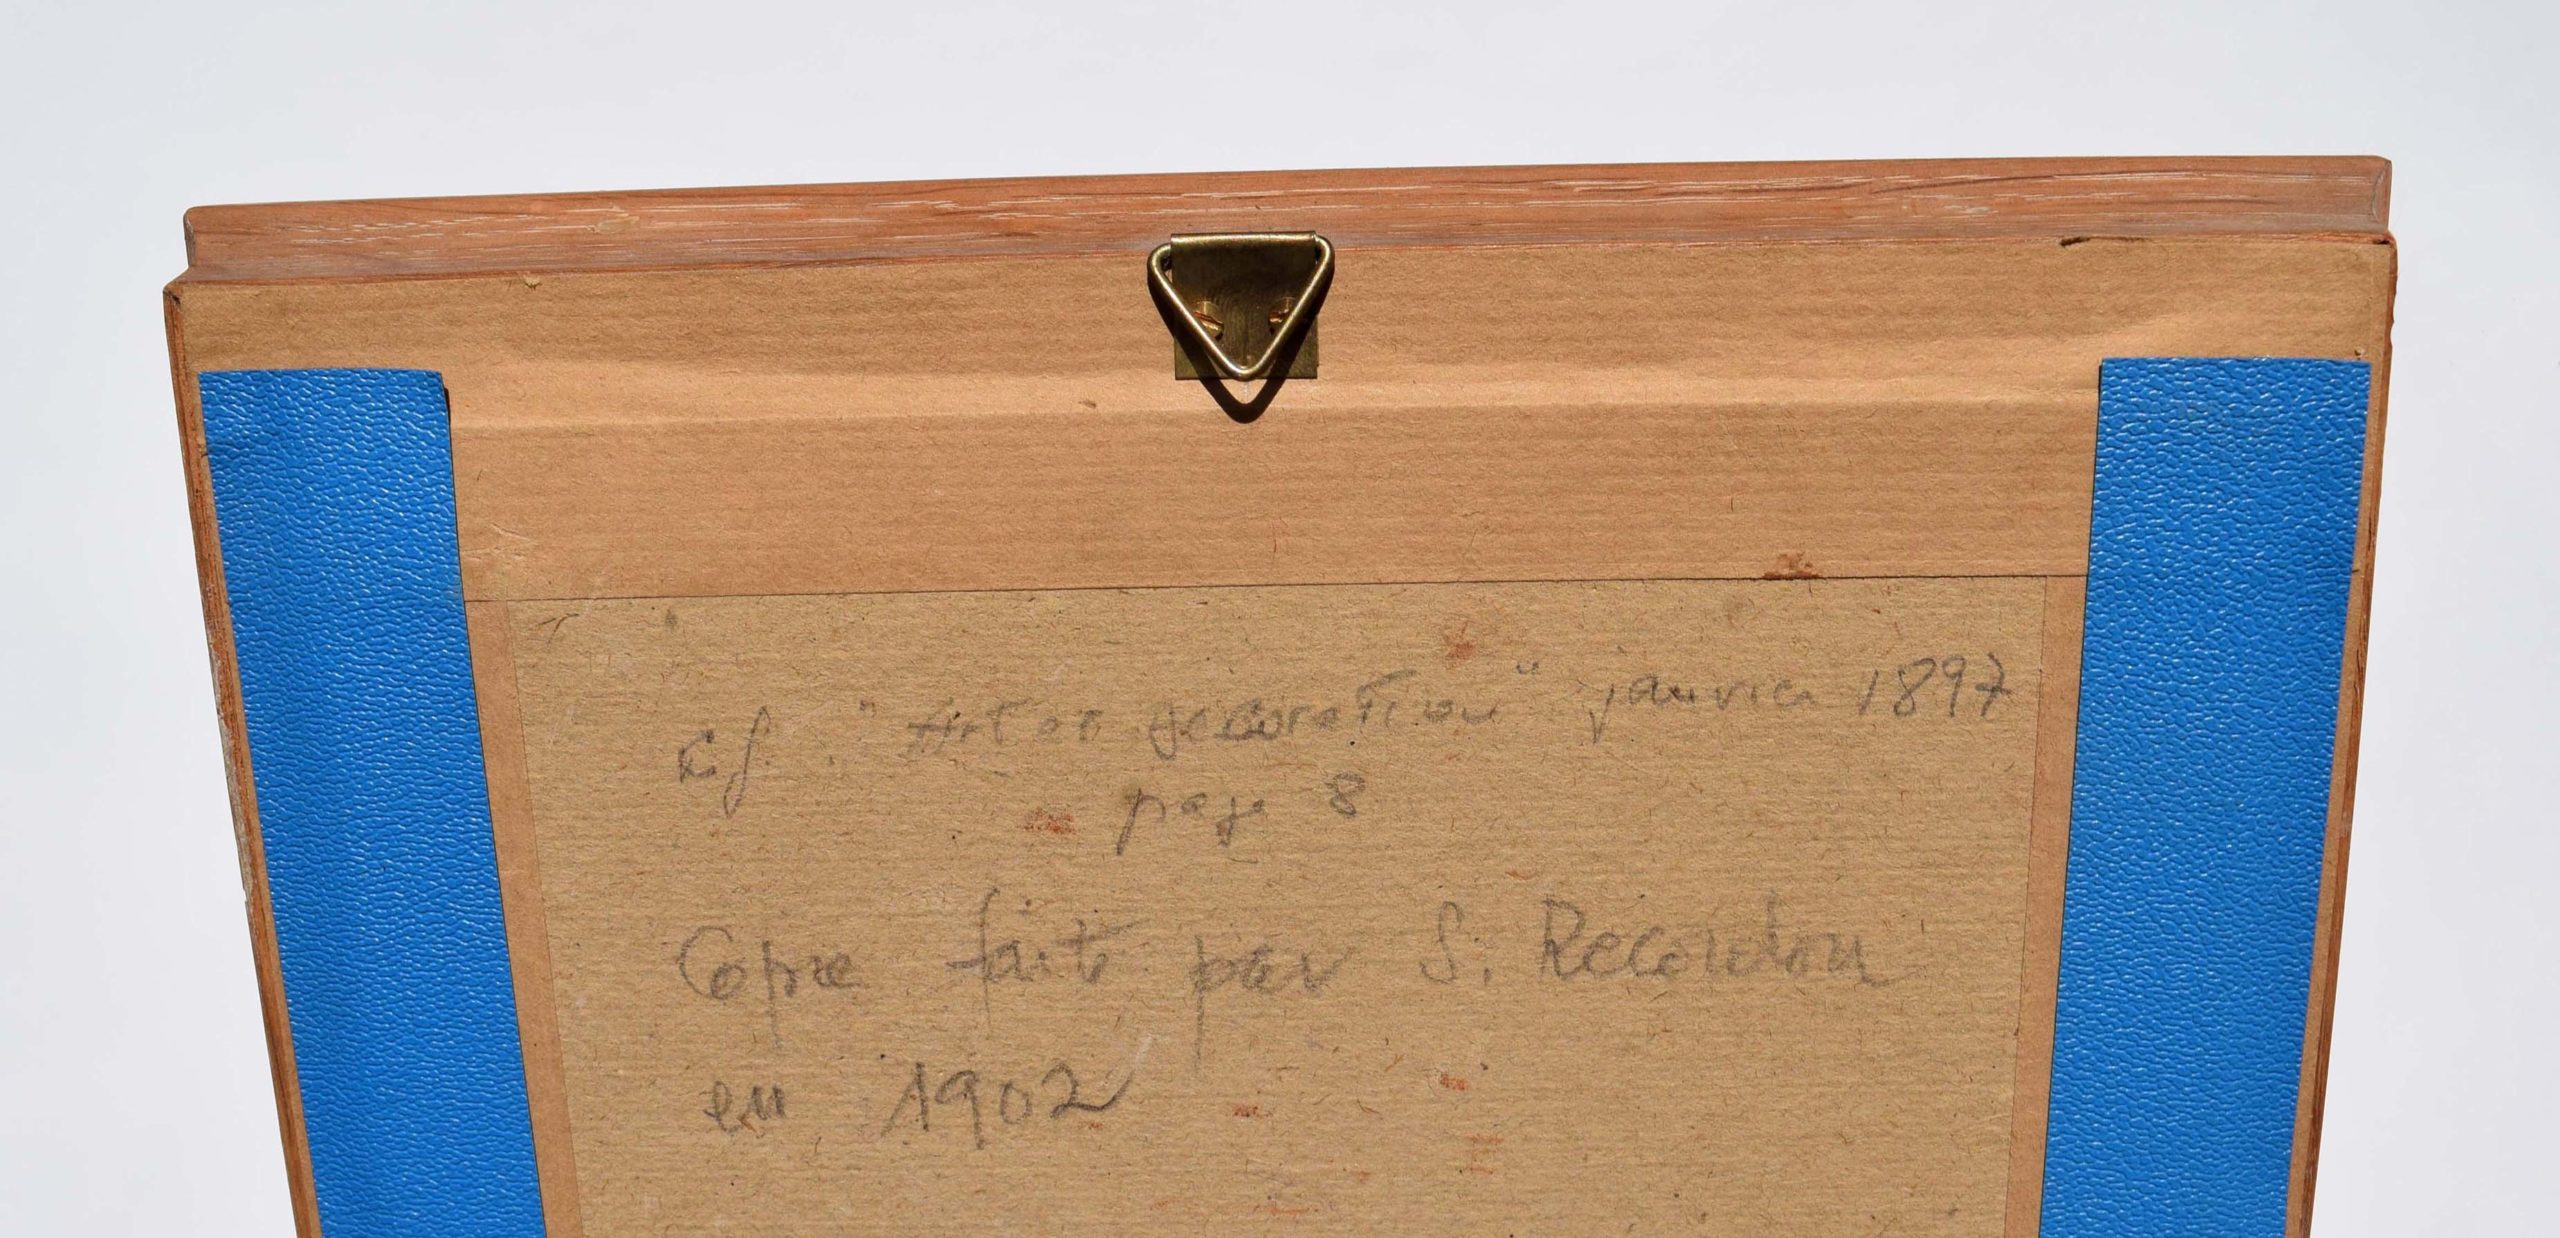 cf. "Art et decoration" janvier 1897
page 8
Copie faite par S. Recordon
en 1902